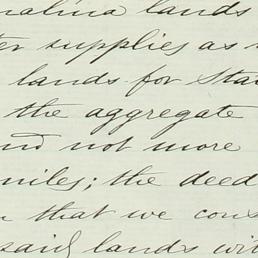 lands
supplies as
lands for
the aggregate
not more
miles; the deed
that we
said lands